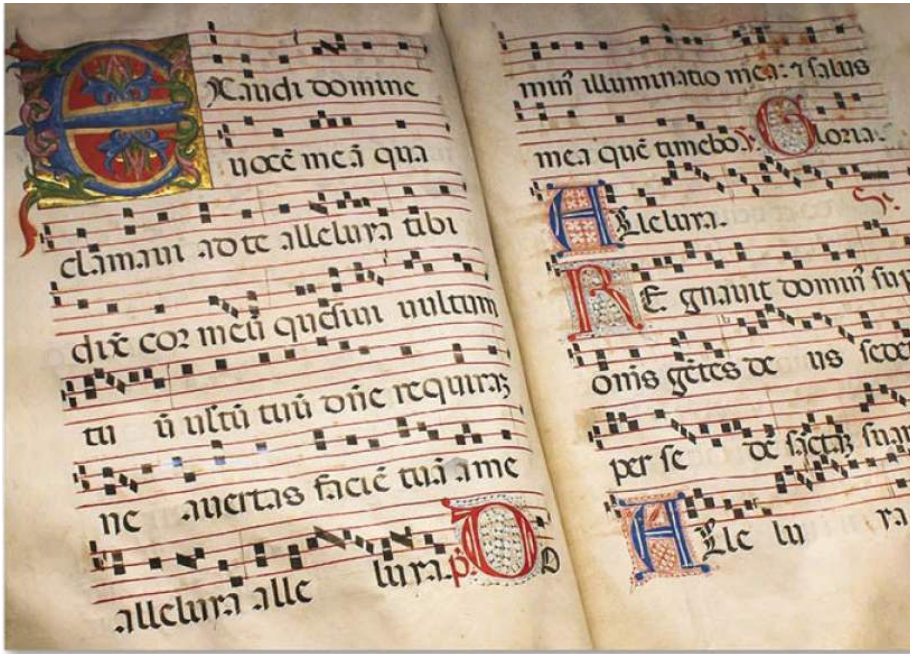 EXaudi domine
uocē meā qua
clamaui ad te alleluya tibi
dix̄ coꝛ meū quesiui uultum
tuū uultū tuū dn̄e requirā
ne auertas faciē tuā a me
alleluya alle luya. p̄ D D
min̄ illuminatio mea: ⁊ salus
mea quē timebo. Gloria.
ALleluya.
RE gnauit domin̄ sup
om̄s gētes de us sedet
per se dē sāctā suam
ALle lu ya